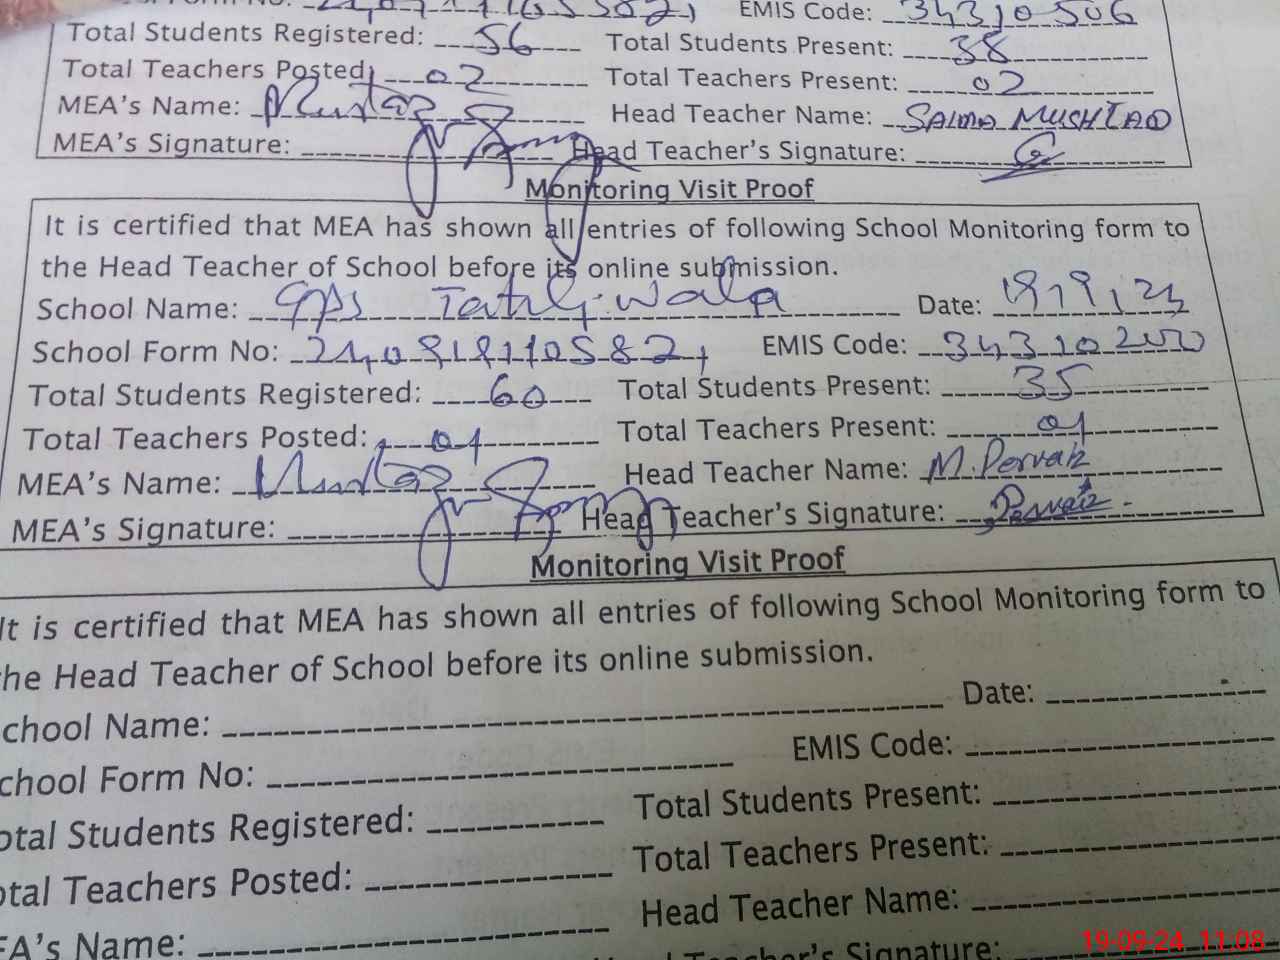 EMIS Code: 34310506
Total Students Registered: 56 Total Students Present: 38
Total Teachers Posted: 02 Total Teachers Present: 02
MEA's Name: Mumtaz Head Teacher Name: SALMA MUSHTAQ
MEA's Signature: Head Teacher's Signature:
Monitoring Visit Proof
It is certified that MEA has shown all entries of following School Monitoring form to
the Head Teacher of School before its online submission.
School Name: GPS Date: 19/9/24
School Form No: EMIS Code: 34310200
Total Students Registered: 60 Total Students Present: 35
Total Teachers Posted: 01 Total Teachers Present: 01
MEA's Name: Mumtaz Head Teacher Name: M. Pervaiz
MEA's Signature: Head Teacher's Signature: Pervaiz
Monitoring Visit Proof
It is certified that MEA has shown all entries of following School Monitoring form to
the Head Teacher of School before its online submission.
School Name: Date:
School Form No: EMIS Code:
Total Students Registered: Total Students Present:
Total Teachers Posted: Total Teachers Present:
MEA's Name: Head Teacher Name:
Teacher's Signature:
19-09-24 11:08